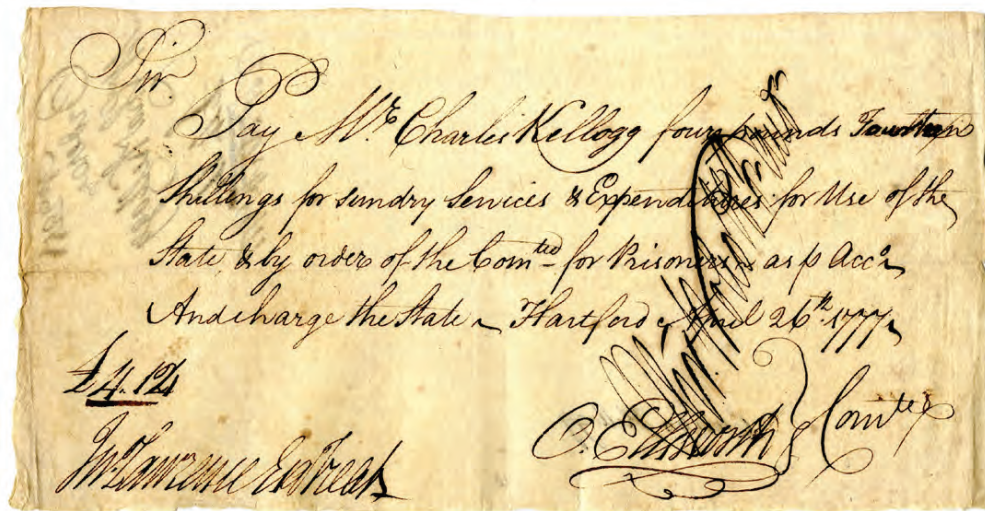 Sir
Pay Mr. Charles Kellogg four pounds Fourteen
Shillings for sundry Services & Expenditures for Use of the
State & by order of the Comtee for Prisoners as p Acco
And charge the State Hartford April 26th 1777
£4.14
O. Ellsworth } Comtee
Jno Lawrence Esq Treas